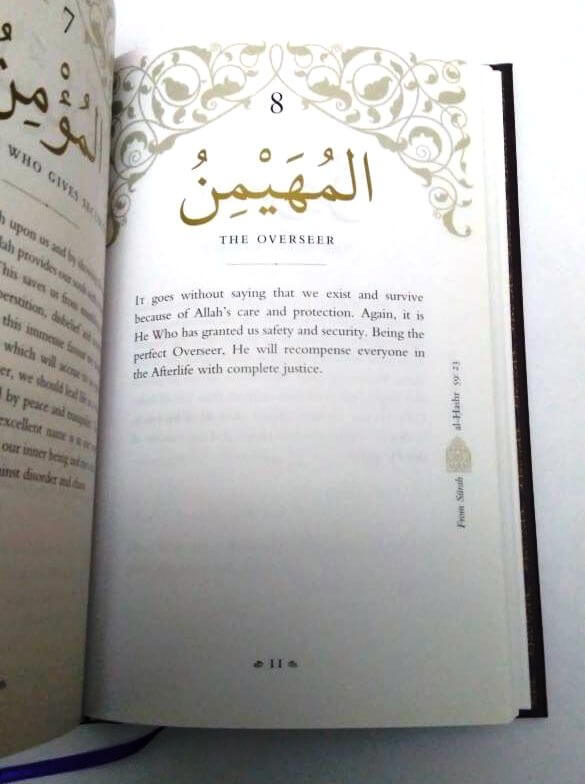 7
المُؤْمِنُ
WHO GIVES
upon us and by
provides our souls with
This saves us from
disbelief and
this immense favour
which will accrue to
we should lead life
by peace and
excellent name is
our inner being and
disorder and
8
المُهَيْمِنُ
THE OVERSEER
IT goes without saying that we exist and survive
because of Allah's care and protection. Again, it is
He Who has granted us safety and security. Being the
perfect Overseer, He will recompense everyone in
the Afterlife with complete justice.
From Sūrah al-Ḥashr 59: 23
11